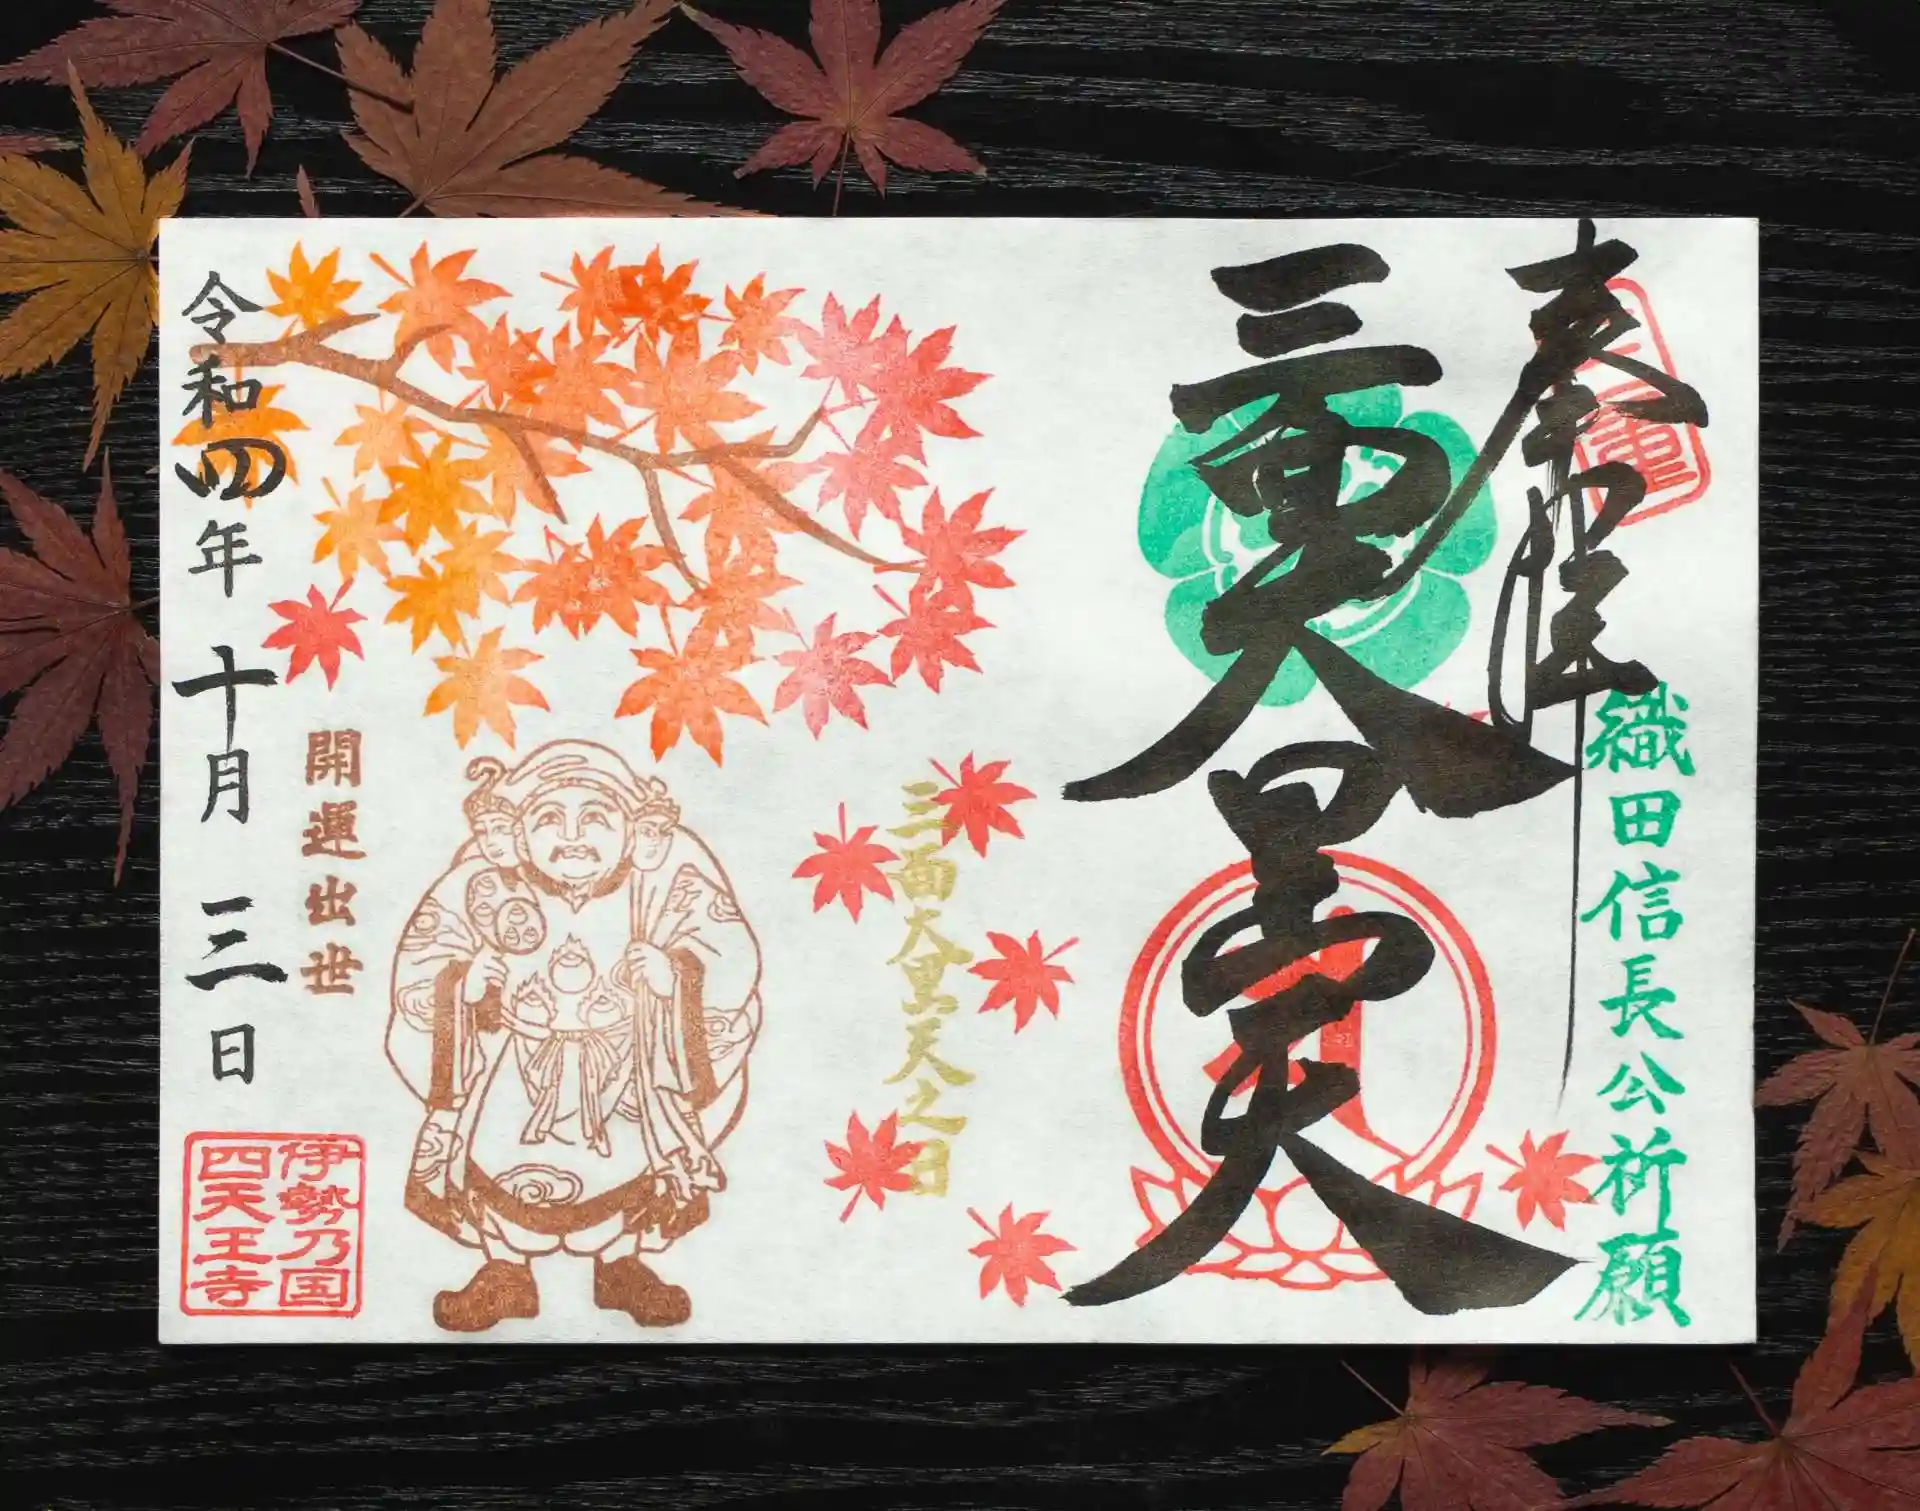 奉拝
三面大黒天
織田信長公祈願
三面大黒天之日
開運出世
令和四年 十月 三日
伊勢乃国
四天王寺